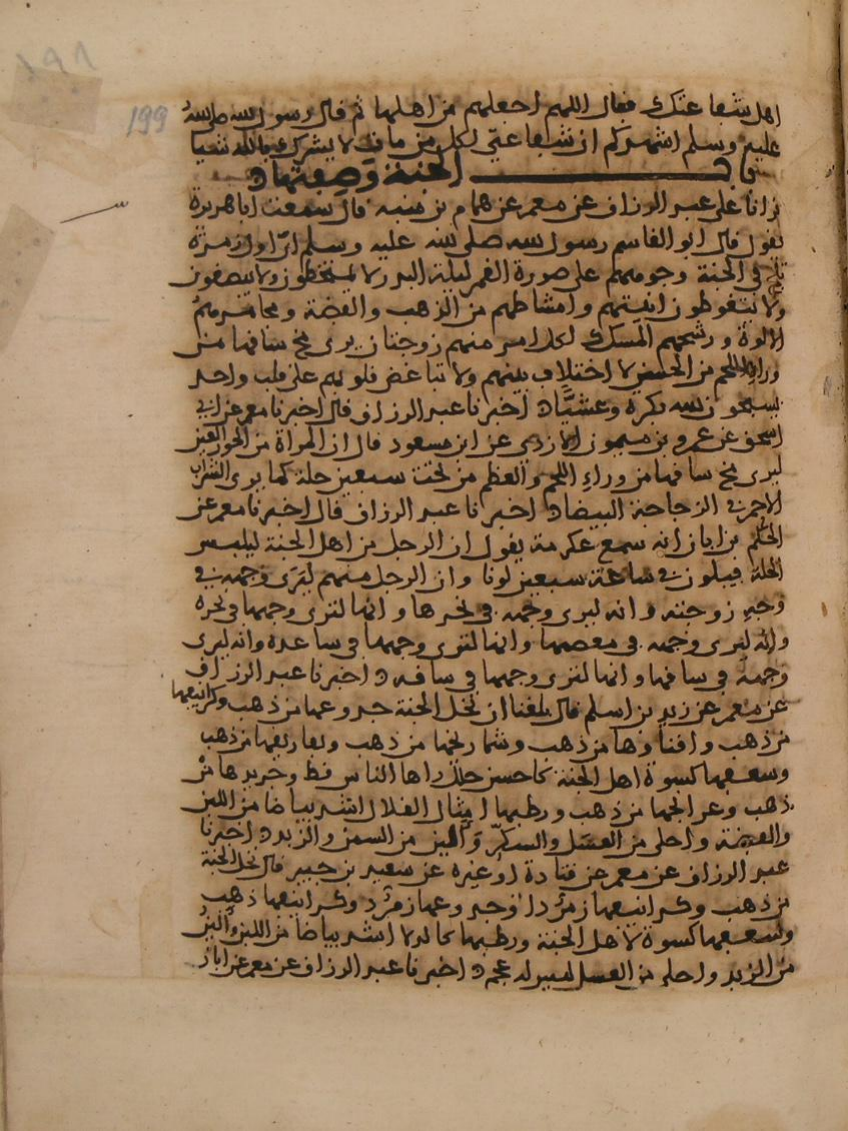 ١٩٨
199
اهل شفاعتك فقال اللهم اجعلهم من اهلها ثم قال رسول الله صلى الله
عليه وسلم اشهدكم ان شفاعتي لكل من مات لا يشرك بالله شيا
باب الجنة وصفتها
قرانا على عبد الرزاق عن معمر عن همام بن منبه قال سمعت ابا هريرة
يقول قال ابو القاسم رسول الله صلى الله عليه وسلم ان اول زمرة
تلج في الجنة وجوههم على صورة القمر ليلة البدر لا يمتخطون ولا يبصقون
ولا يتغوطون انيتهم وامشاطهم من الذهب والفضة ومجامرهم
الالوة ورشحهم المسك لكل امر منهم زوجتان يرى مخ ساقها من
وراء اللحم من الحسن لا اختلاف بينهم ولا تباغض قلوبهم على قلب واحد
يسبحون الله بكرة وعشيا اخبرنا عبد الرزاق قال اخبرنا معمر عن ابي
اسحق عن عمرو بن ميمون الازدي عن ابن مسعود قال ان المراة من الحور العين
ليرى مخ ساقها من وراء اللحم والعظم من تحت سبعين حلة كما يرى الشراب
الاحمر في الزجاجة البيضا اخبرنا عبد الرزاق قال اخبرنا معمر عن
الحكم بن ابان انه سمع عكرمة يقول ان الرجل من اهل الجنة ليلبس
الحلة فيلون في ساعة سبعين لونا وان الرجل منهم ليرى وجهه في
وجه زوجته وانه ليرى وجهه في نحرها وانها لترى وجهها في نحره
وانه ليرى وجهه في معصمها وانها لترى وجهها في ساعده وانه ليرى
وجهه في ساقها وانها لترى وجهها في ساقه اخبرنا عبد الرزاق
عن معمر عن زيد بن اسلم قال بلغنا ان نخل الجنة جذوعها من ذهب وكرانيفها
من ذهب واقناوها من ذهب وشماريخها من ذهب وتفاريقها من ذهب
وسعفها كسوة اهل الجنة كاحسن حلل راها الناس قط وجريدها من
ذهب وعراجنها من ذهب ورطبها امثال القلال اشد بياضا من اللبن
والفضة واحلى من العسل والسكر والين من السمن والزبد اخبرنا
عبد الرزاق عن معمر عن قتادة او غيره عن سعيد بن جبير قال نخل الجنة
من ذهب وكرانيفها زمرد او جذوعها زمرد وكرانيفها ذهب
وسعفها كسوة لاهل الجنة ورطبها كالدلا اشد بياضا من اللبن والين
من الزبد واحلى من العسل ليس له عجم اخبرنا عبد الرزاق عن معمر عن ابان